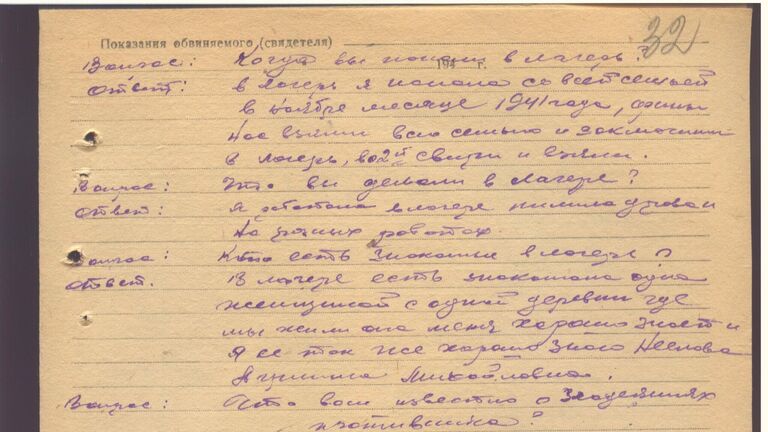 32
Показания обвиняемого (свидетеля)
194 г.
Вопрос: Когда вы попали в лагерь?
Ответ: в лагерь я попала со всей семьей
в ноябре месяце 1941 года, финны
нас взяли всю семью и заключили
в лагерь, во 2й и взяли.
Вопрос: Что вы делали в лагере?
Ответ: Я работала в лагере пилила дрова и
на разных работах.
Вопрос: Кто есть знакомые в лагере?
Ответ. В лагере есть знакомая одна
женщиной с одной деревни где
мы жили она меня хорошо знает и
я ее так же хорошо знаю
Михайловна.
Вопрос: Что вам известно о злодеяниях
противника?